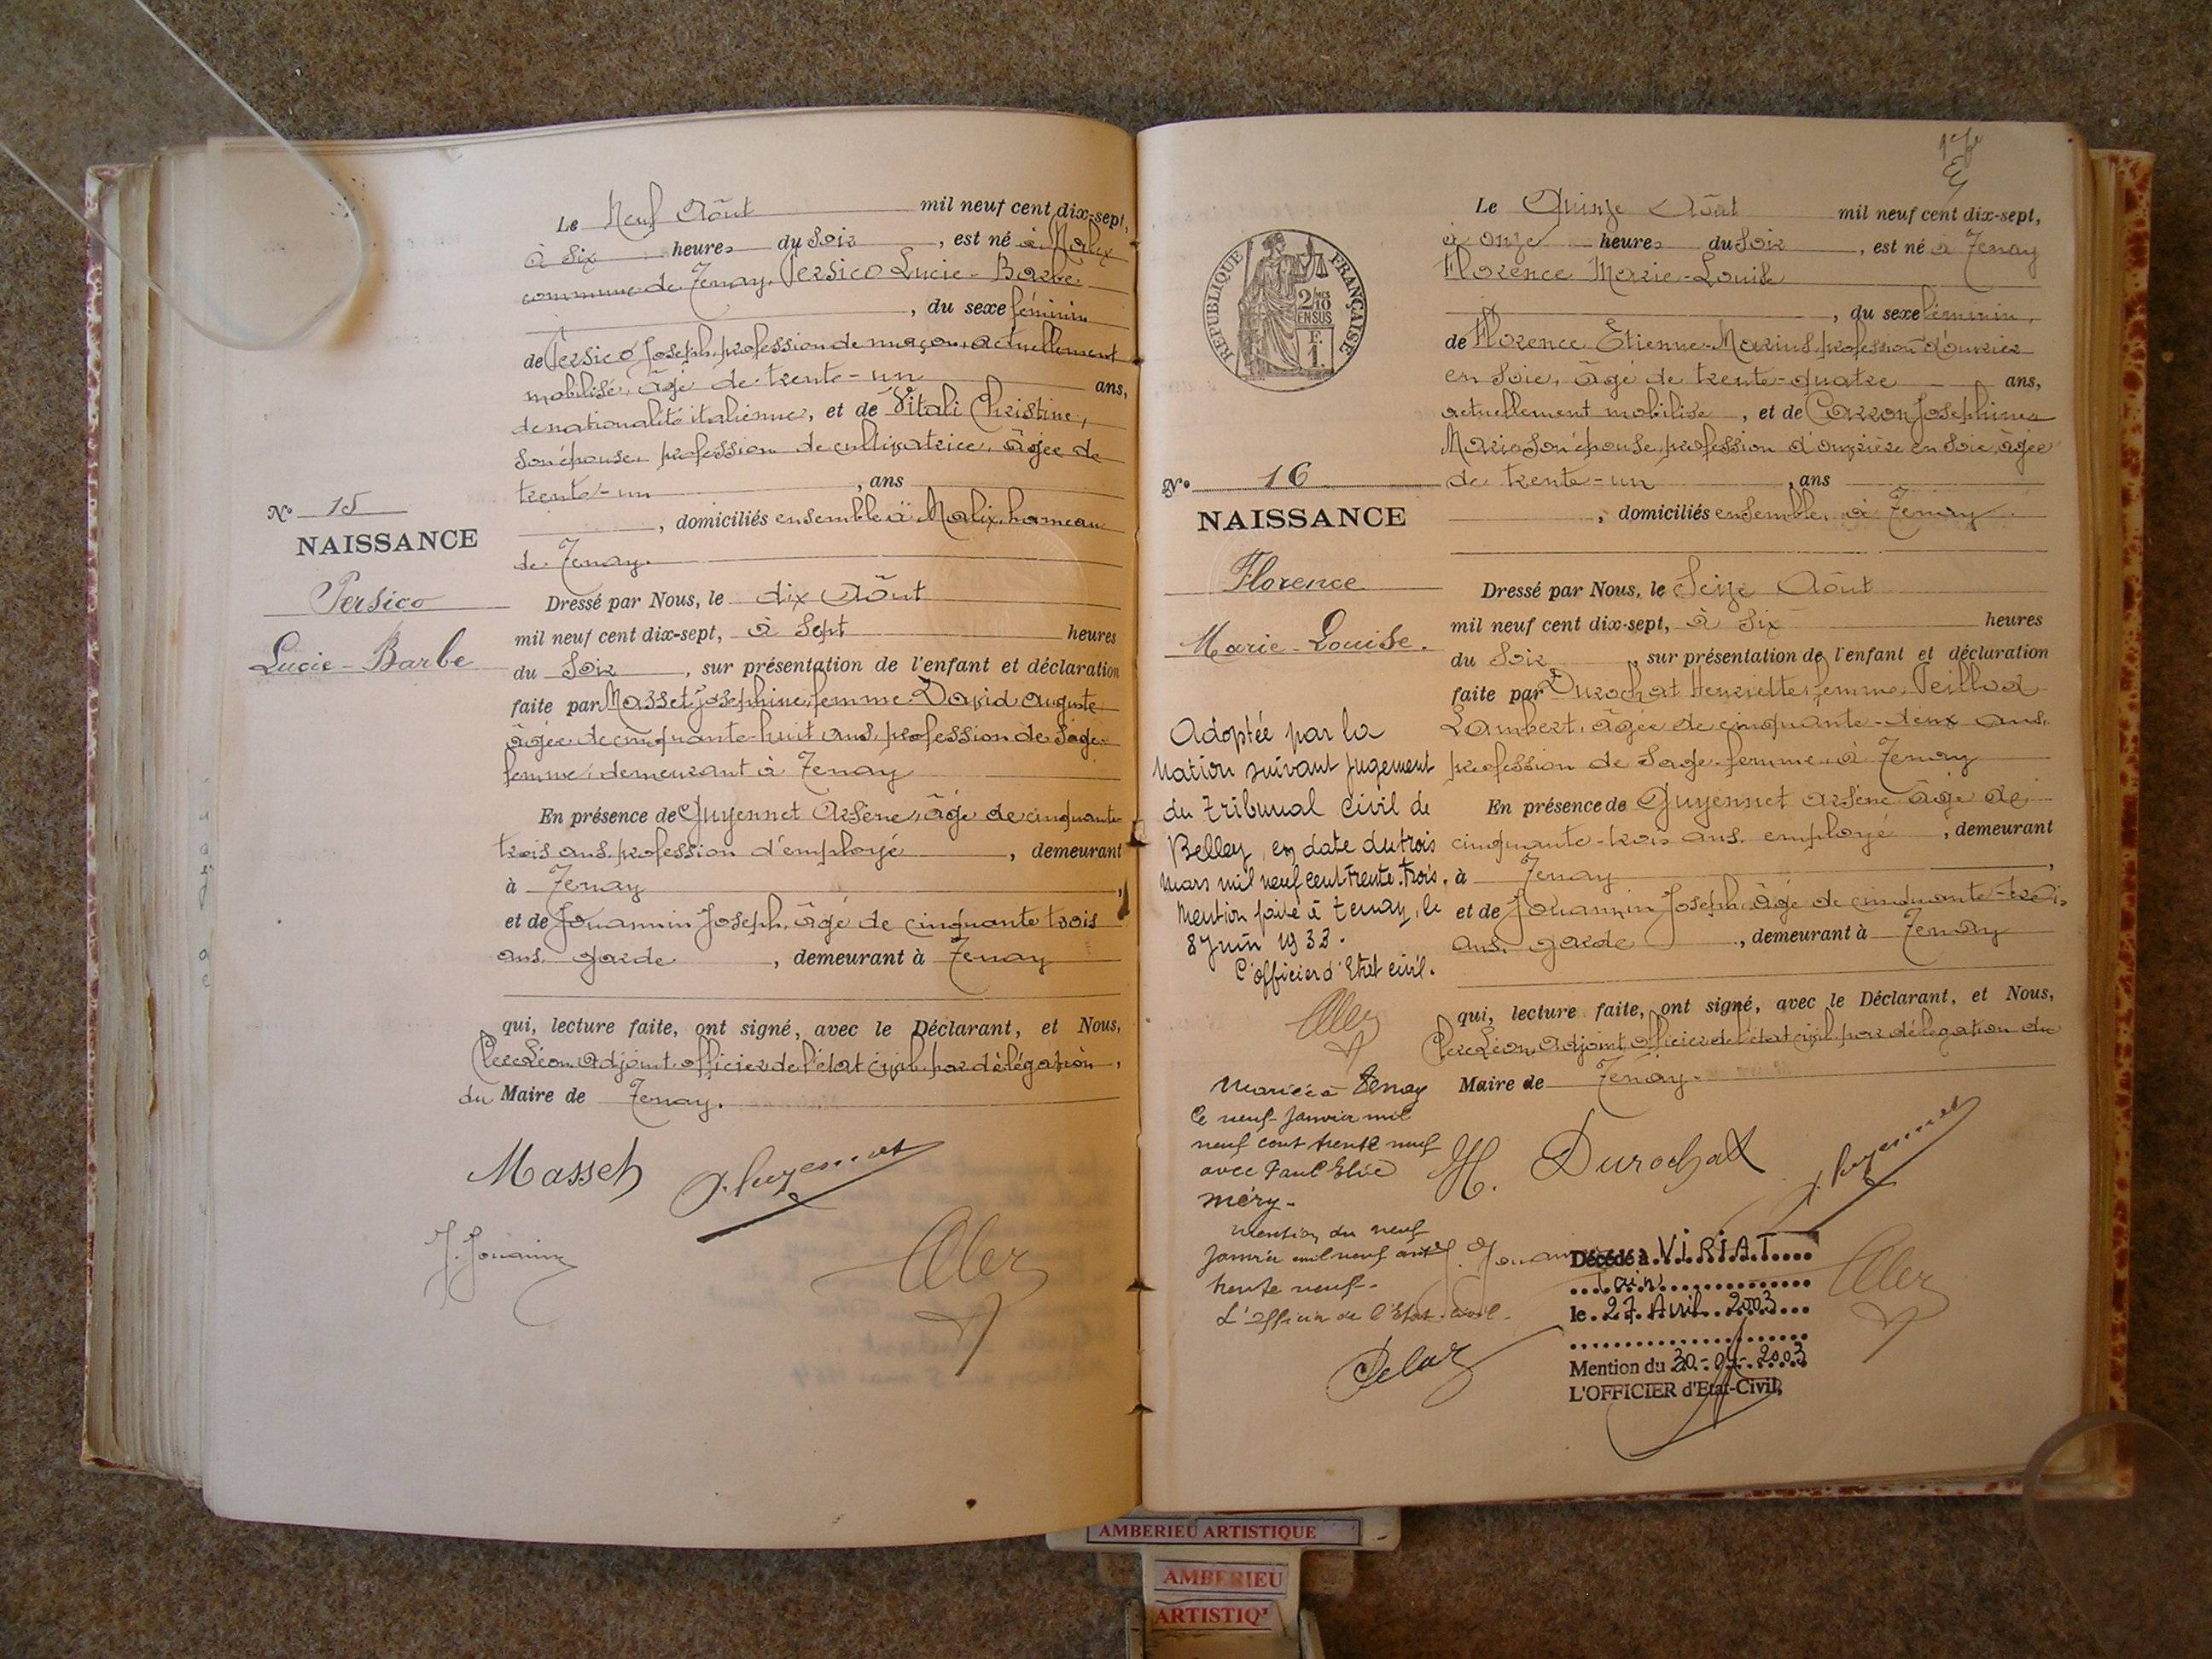 Le Neuf Août mil neuf cent dix-sept,
à six heures du soir, est né à Malix
commune de Tenay, Persico Lucie-Barbe
, du sexe féminin
de Persico Joseph, profession de maçon, actuellement
mobilisé, âgé de trente-un ans,
de nationalité italienne, et de Vitali Christine,
son épouse, profession de cultivatrice, âgée de
trente-un, ans
, domiciliés ensemble à Malix, hameau
de Tenay.
N° 15
NAISSANCE
Persico
Lucie-Barbe
Dressé par Nous, le dix Août
mil neuf cent dix-sept, à sept heures
du soir, sur présentation de l'enfant et déclaration
faite par Masset Joséphine, femme David Auguste
âgée de cinquante-huit ans, profession de sage-
femme, demeurant à Tenay
En présence de Guyennet Arsène, âgé de cinquante-
trois ans, profession d'employé, demeurant
à Tenay,
et de Jouannin Joseph, âgé de cinquante trois
ans, garde, demeurant à Tenay
qui, lecture faite, ont signé, avec le Déclarant, et Nous,
Léon, Adjoint, officier de l'état civil par délégation,
du Maire de Tenay.
Masset
J. Jouannin
REPUBLIQUE FRANÇAISE
2/10 MES
EN SUS
F.
1.
Le Quinze Août mil neuf cent dix-sept,
à onze heures du soir, est né à Tenay
Florence Marie-Louise
, du sexe féminin,
de Florence Etienne-Marius, profession d'ouvrier
en soie, âgé de trente-quatre ans,
actuellement mobilisé, et de Carron Joséphine
Marie son épouse, profession d'ouvrière en soie, âgée
de trente-un, ans
, domiciliés ensemble, à Tenay
N° 16
NAISSANCE
Florence
Marie-Louise.
Dressé par Nous, le Seize Août
mil neuf cent dix-sept, à six heures
du soir, sur présentation de l'enfant et déclaration
faite par Durochat Henriette, femme
Lambert, âgée de cinquante-deux ans,
profession de sage-femme, à Tenay
En présence de Guyennet Arsène âgé de
cinquante-trois ans, employé, demeurant
à Tenay,
et de Jouannin Joseph, âgé de cinquante-trois
ans, garde, demeurant à Tenay
qui, lecture faite, ont signé, avec le Déclarant, et Nous,
Léon, Adjoint, officier de l'état civil par délégation du
Maire de Tenay.
Adoptée par la
Nation suivant jugement
du tribunal civil de
Belley, en date du trois
mars mil neuf cent trente-trois.
Mention faite à Tenay, le
8 Juin 1933.
L'officier d'Etat civil.
Mariée à Tenay
le neuf Janvier mil
neuf cent trente neuf
avec Paul Elie
Méry-
Mention du neuf
Janvier mil neuf cent
trente neuf-
L'officier de l'Etat-civil.
H. Durochat
J. Jouannin
Décédé à VIRIAT
(Ain)
le 27 Avril 2003
Mention du 30-04-2003
L'OFFICIER d'Etat-Civil,
AMBERIEU ARTISTIQUE
AMBERIEU
ARTISTIQ